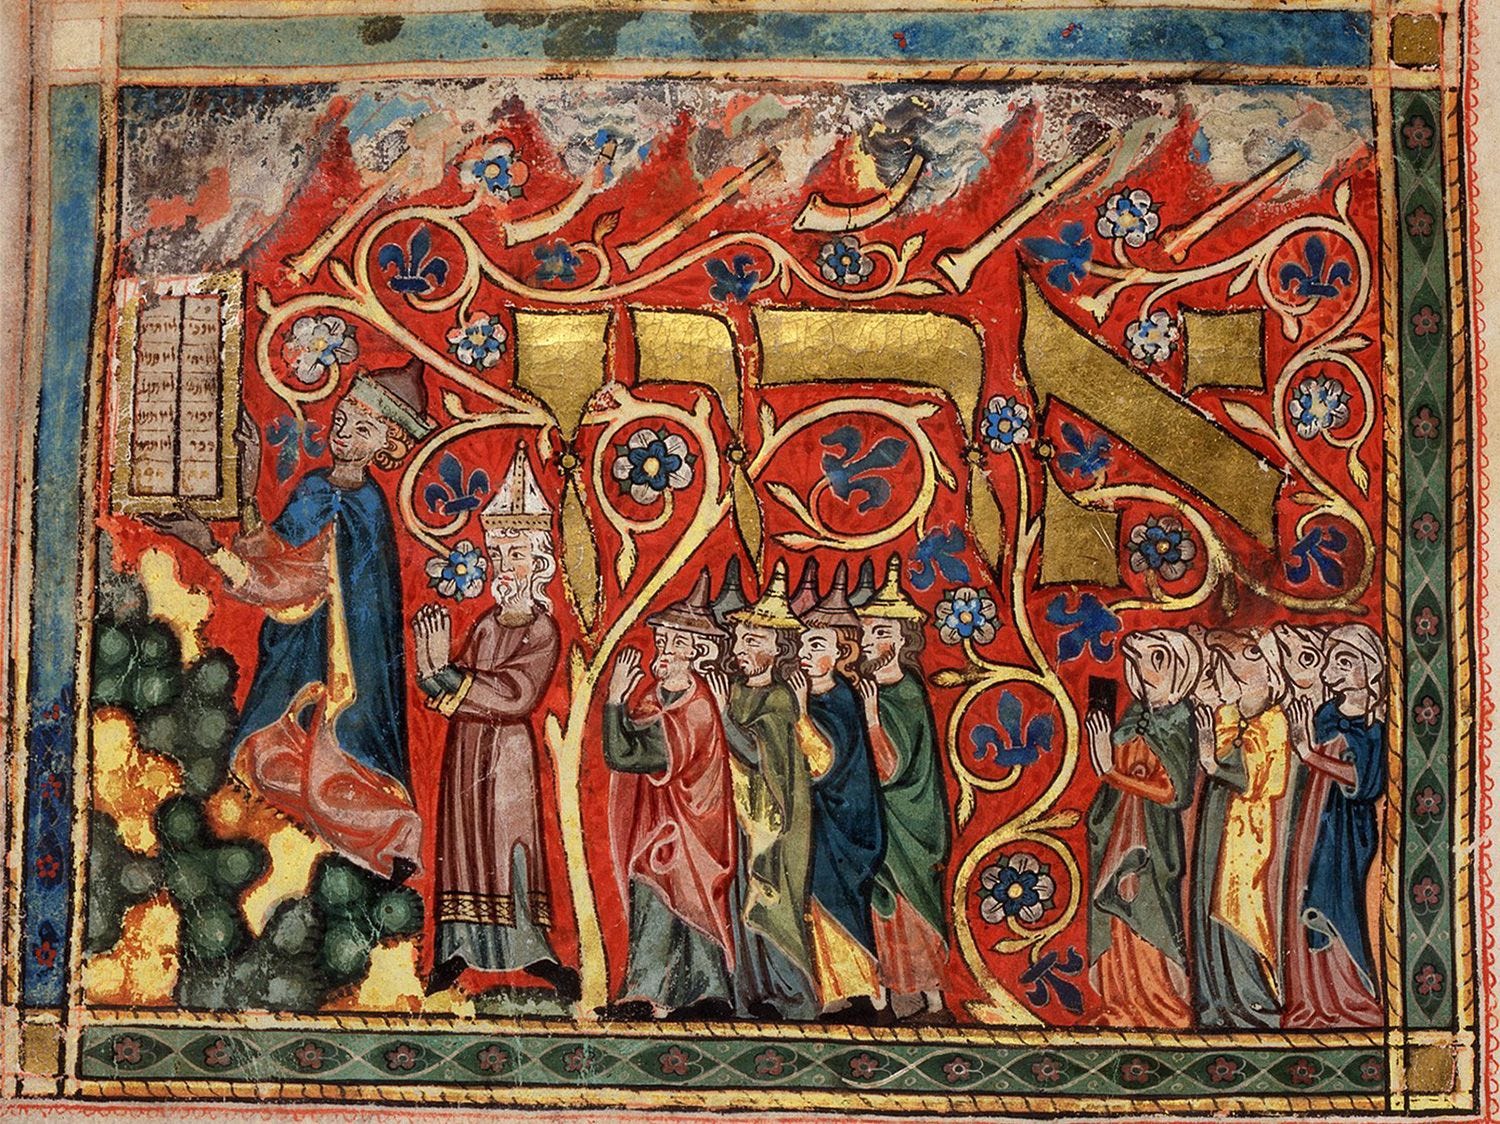 אדון
אנכי
לא יהי
לא תש
זכור
כבד
לא תרצ
לא תנא
לא תגנ
לא תענ
לא תחמ